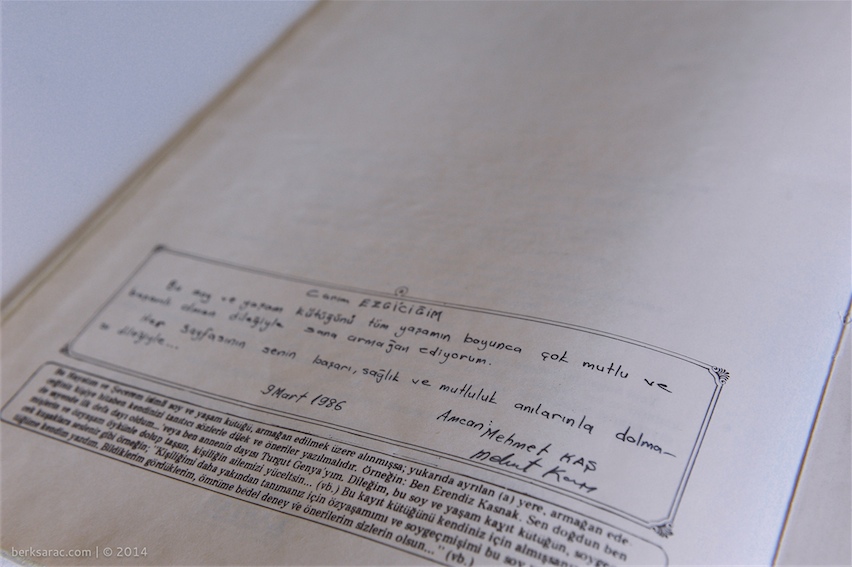 Canım EZGİCİĞİM
Bu soy ve yaşam kütüğünü tüm yaşamın boyunca çok mutlu ve
başarılı olman dileğiyle sana armağan ediyorum.
Her sayfasının senin başarı, sağlık ve mutluluk anılarınla dolma-
sı dileğiyle...
9 Mart 1986
Amcan Mehmet KAŞ
Bu Hayatım ve Soyağacım isimli soy ve yaşam kütüğü, armağan edilmek üzere alınmışsa; yukarıda ayrılan (a) yere, armağan ede-
ceğiniz kişiye hitaben kendinizi tanıtıcı sözlerle dilek ve öneriler yazılmalıdır. Örneğin: Ben Erendiz Kasnak. Sen doğdun ben
de sayende ilk defa dayı oldum... veya ben annenin dayısı Turgut Genya'yım. Dileğim, bu soy ve yaşam kayıt kütüğün, soygeç-
mişinin ve özyaşam öykünle dolup taşsın, kişiliğin ailemizi yüceltsin... (vb.) Bu kayıt kütüğünü kendiniz için almışsanız
kuşaklara seslenir gibi örneğin; "Kişiliğimi daha yakından tanımanız için özyaşamımı ve soygeçmişimi bu soy
kendim yazdım. Bildiklerim gördüklerim, ömrüme bedel deney ve önerilerim sizlerin olsun..." (vb.)
berksarac.com | © 2014